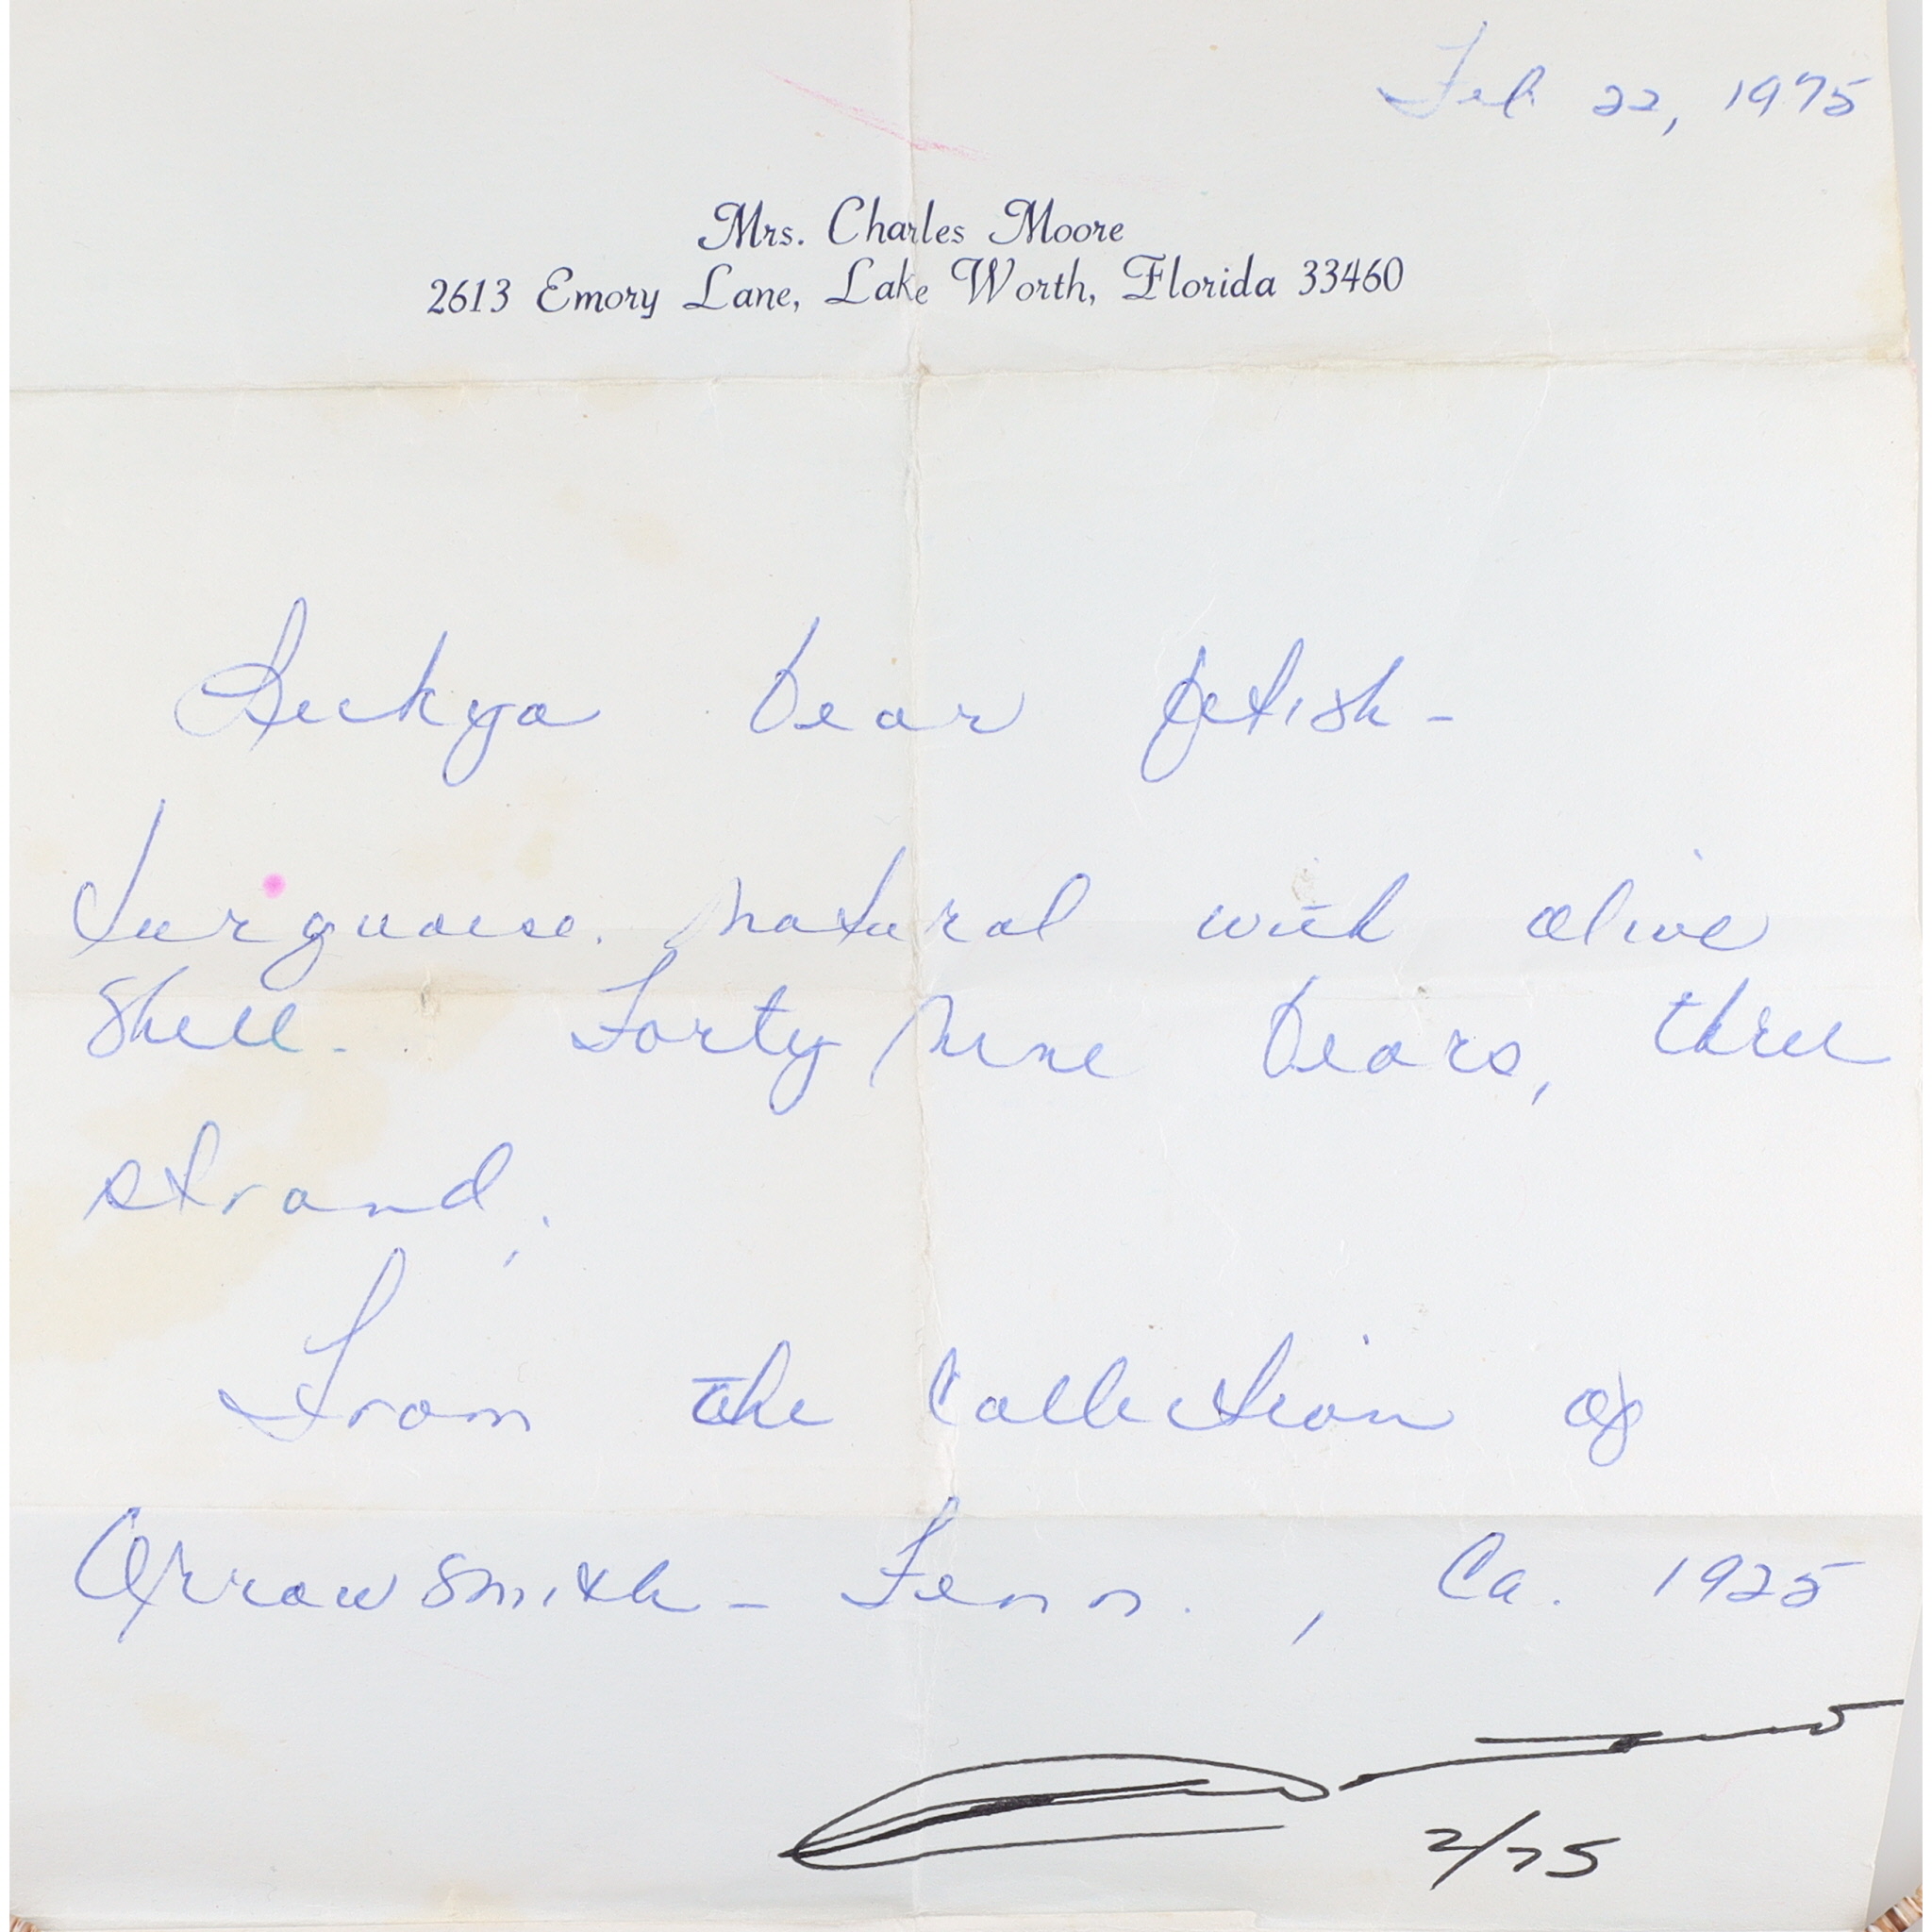 Feb 22, 1975
Mrs. Charles Moore
2613 Emory Lane, Lake Worth, Florida 33460
Leekya bear fetish-
turquoise. natural with olive
Shell. Forty Nine bears, three
strand.
From the Collection of
Arrowsmith - Fenn., Ca. 1925
2/75